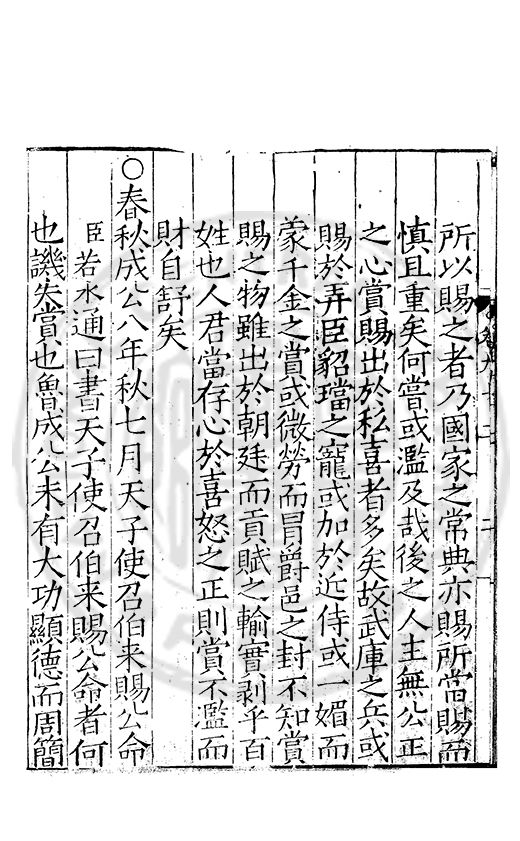 所以賜之者乃國家之常典亦賜所當賜而
慎且重矣何嘗或濫及哉後之人主無公正
之心賞賜出於私喜者多矣故武庫之兵或
賜於弄臣貂璫之寵或加於近侍或一媚而
蒙千金之賞或微勞而冒爵邑之封不知賞
賜之物雖出於朝廷而貢賦之輸實剥乎百
姓也人君當存心於喜怒之正則賞不濫而
財自舒矣
○春秋成公八年秋七月天子使召伯来賜公命
臣若水通曰書天子使召伯来賜公命者何
也譏失賞也魯成公未有大功顯德而周簡